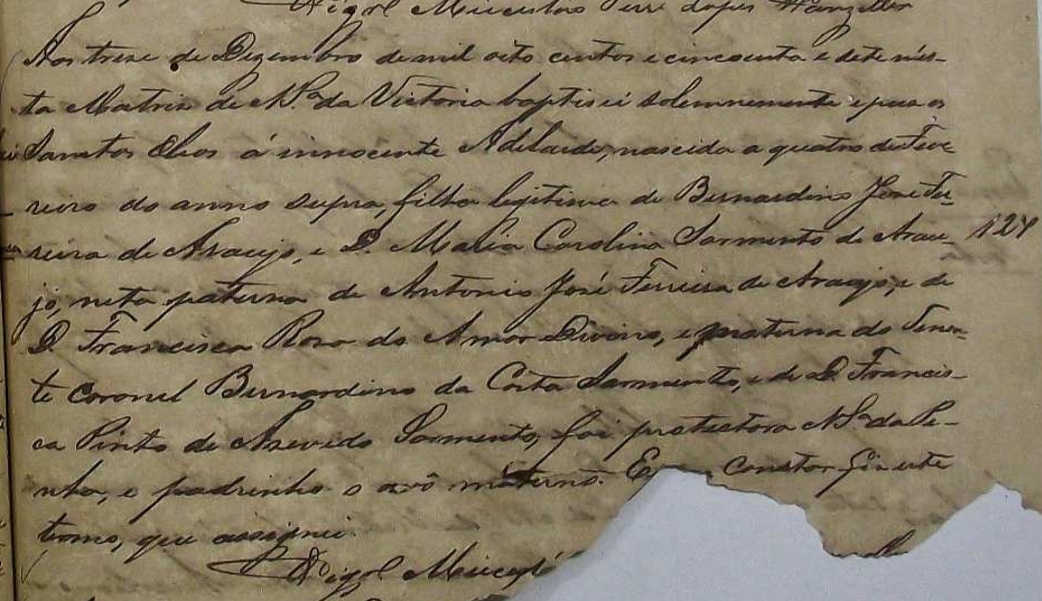 Lopes Wanzeller
Aos treze de Dezembro de mil oito centos e cincoenta e sete nés-
ta Matriz de N. Sª da Victoria baptisei solemnemente e puz os
Santos Oleos á innocente Adelaide, nascida a quatro de Feve-
reiro do anno supra, filha legitima de Bernardino José Fer-
reira de Araujo, e D. Maria Carolina Sarmento de Arau- 124
jo, neta paterna de Antonio José Ferreira de Araujo, e de
D. Francisca Rosa do Amor Divino, e materna do Tenen-
te Coronel Bernardino da Costa Sarmento, e de D. Francis-
ca Pinto de Azevedo Sarmento, foi protectora N. Sª da Pe-
nha, e padrinho o avô materno. E constar fiz este
termo, que assignei.
Vigrº